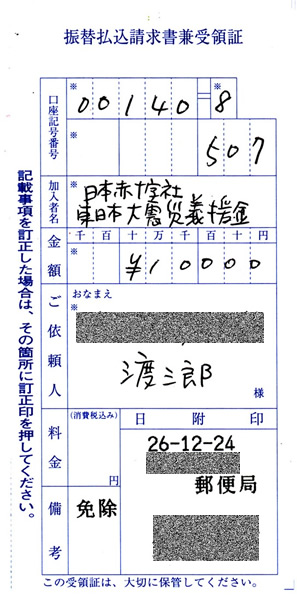 振替払込請求書兼受領証
口座記号番号
※
00140=8
※
507
加入者名
※
日本赤十字社
東日本大震災義援金
金額
千百十万千百十円
※
¥10000
ご依頼人
おなまえ
※
渡三郎
様
料金
(消費税込み)
円
日附印
26-12-24
郵便局
備考
免除
この受領証は、大切に保管してください。
記載事項を訂正した場合は、その箇所に訂正印を押してください。